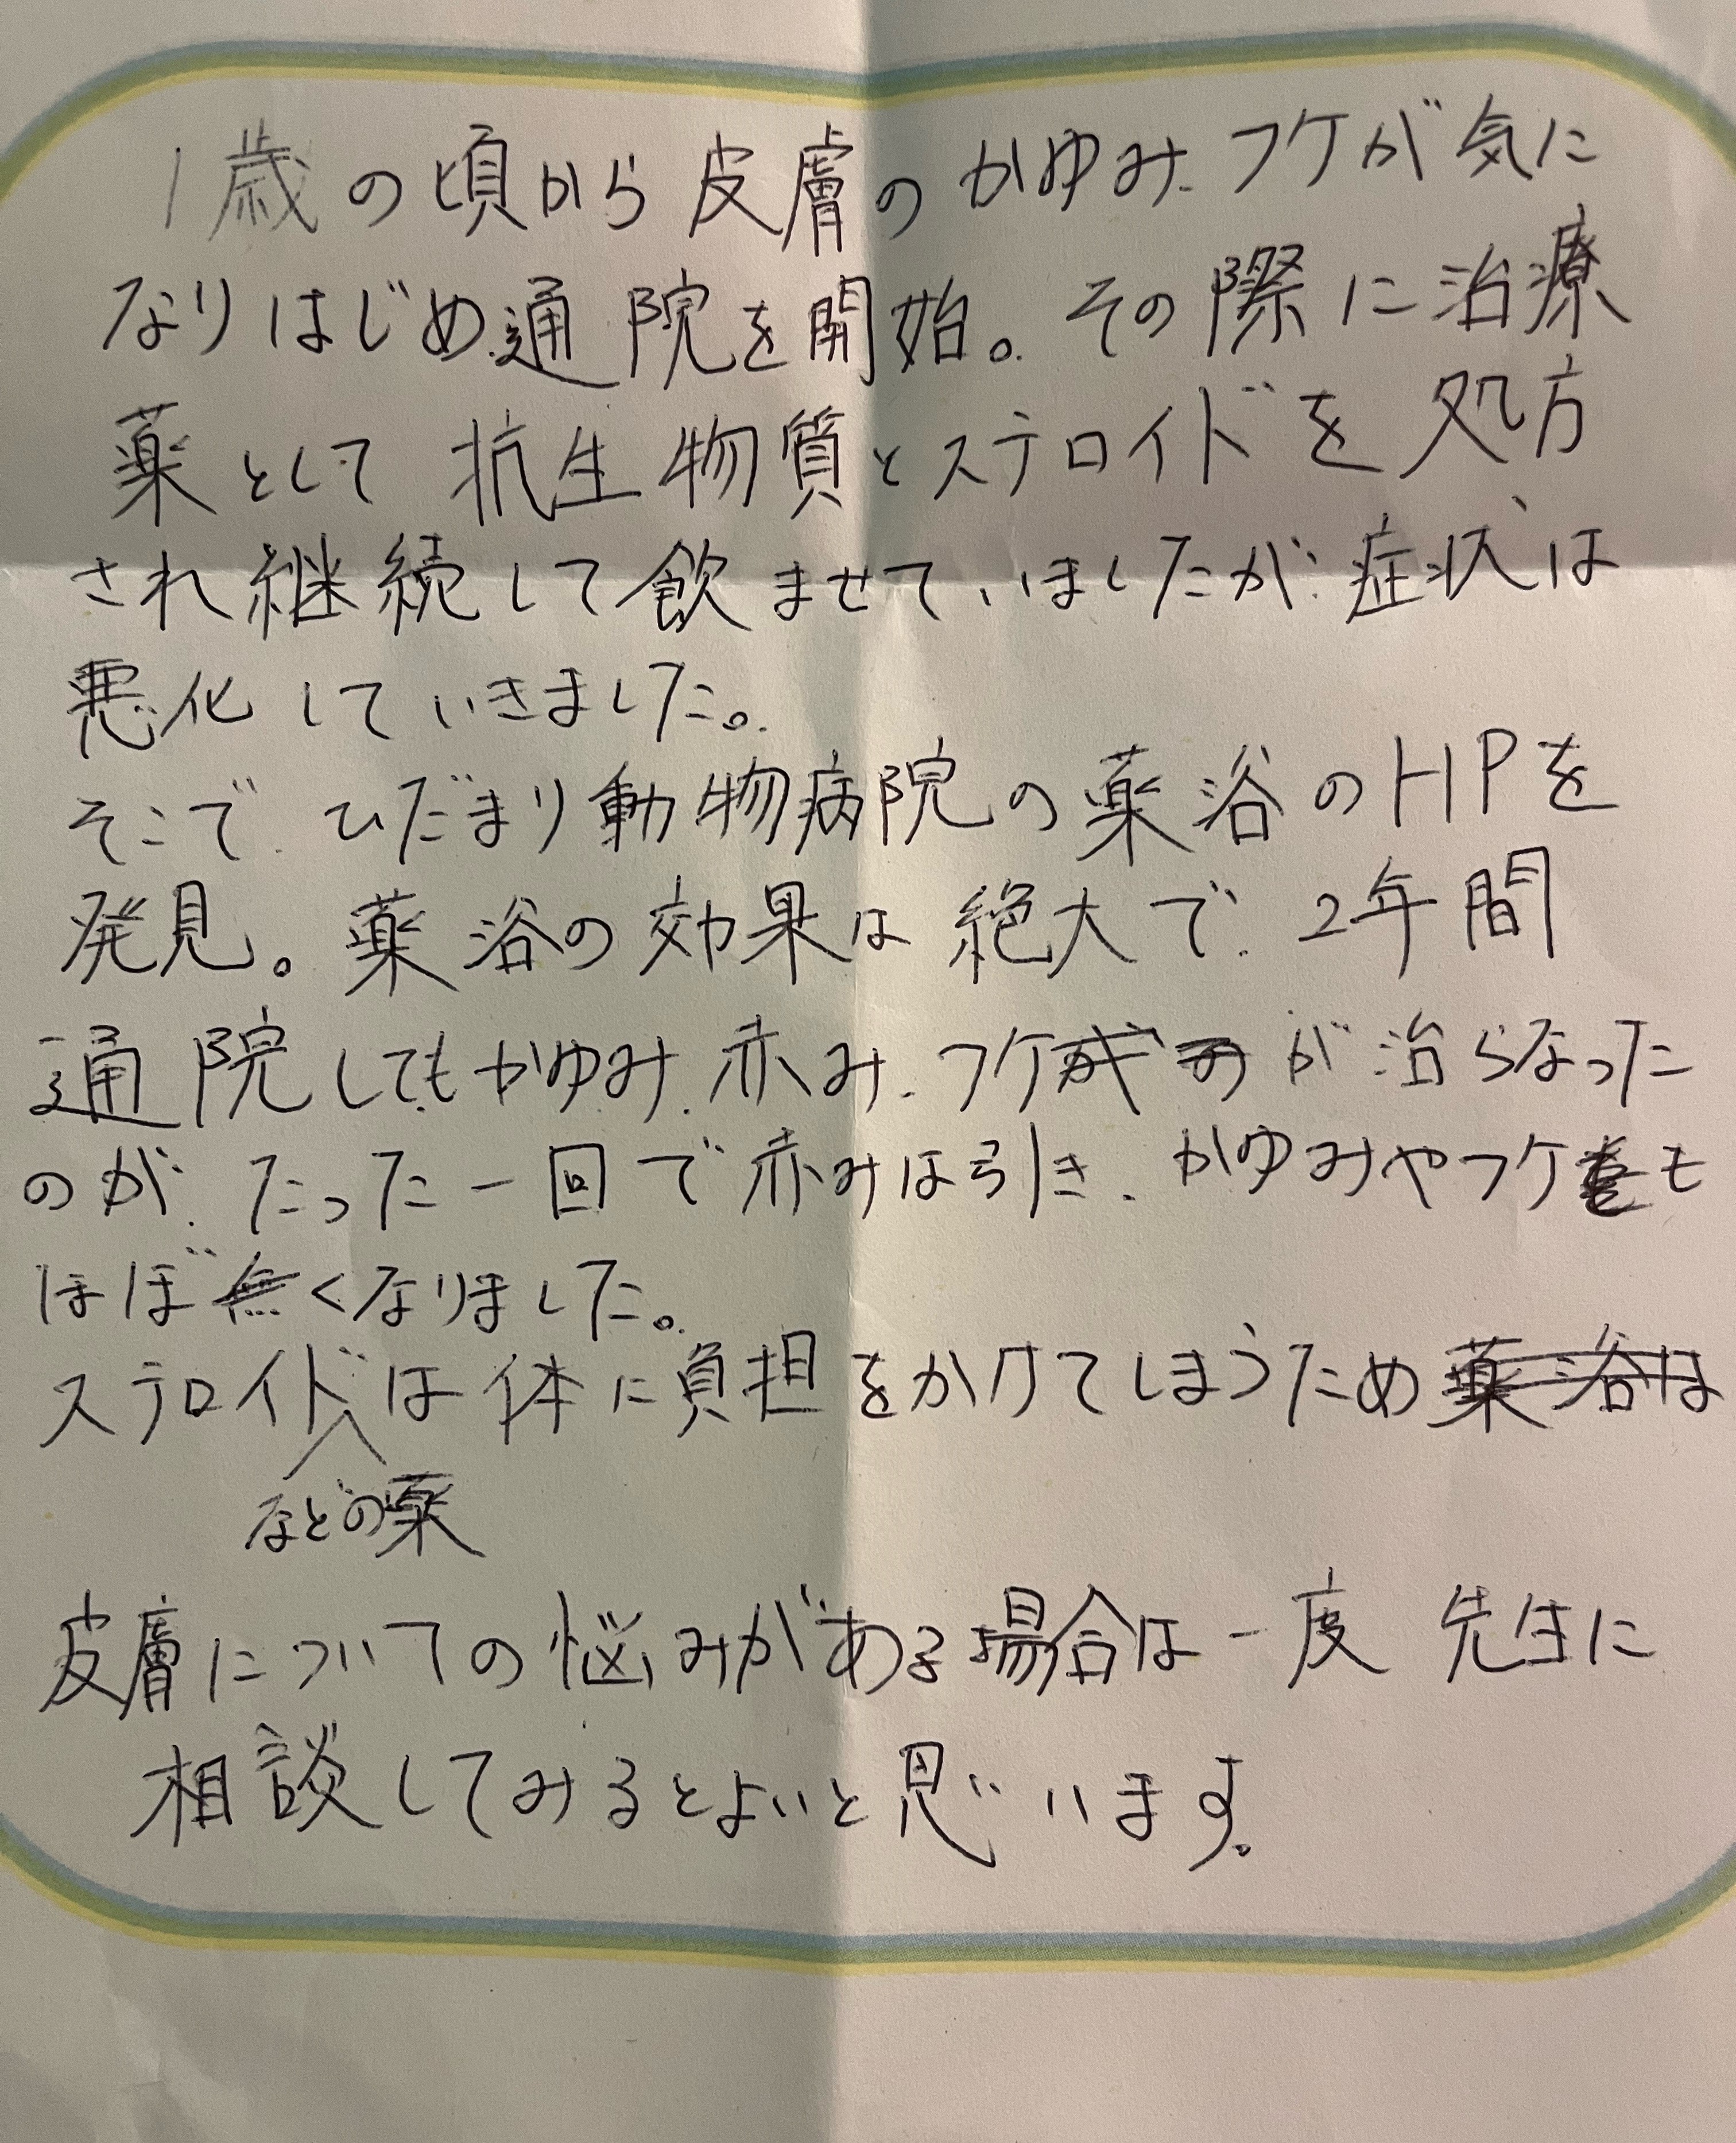 1歳の頃から皮膚のかゆみ、フケが気に
なりはじめ、通院を開始。その際に治療
薬として抗生物質とステロイドを処方
され継続して飲ませていましたが、症状は
悪化していきました。
そこで、ひだまり動物病院の薬浴のHPを
発見。薬浴の効果は絶大で、2年間
通院してもかゆみ、赤み、フケが治らなった
のが、たった一回で赤みは引き、かゆみやフケも
ほぼ無くなりました。
ステロイドは体に負担をかけてしまうため薬浴は
などの薬
皮膚についての悩みがある場合は一度 先生に
相談してみるとよいと思います。